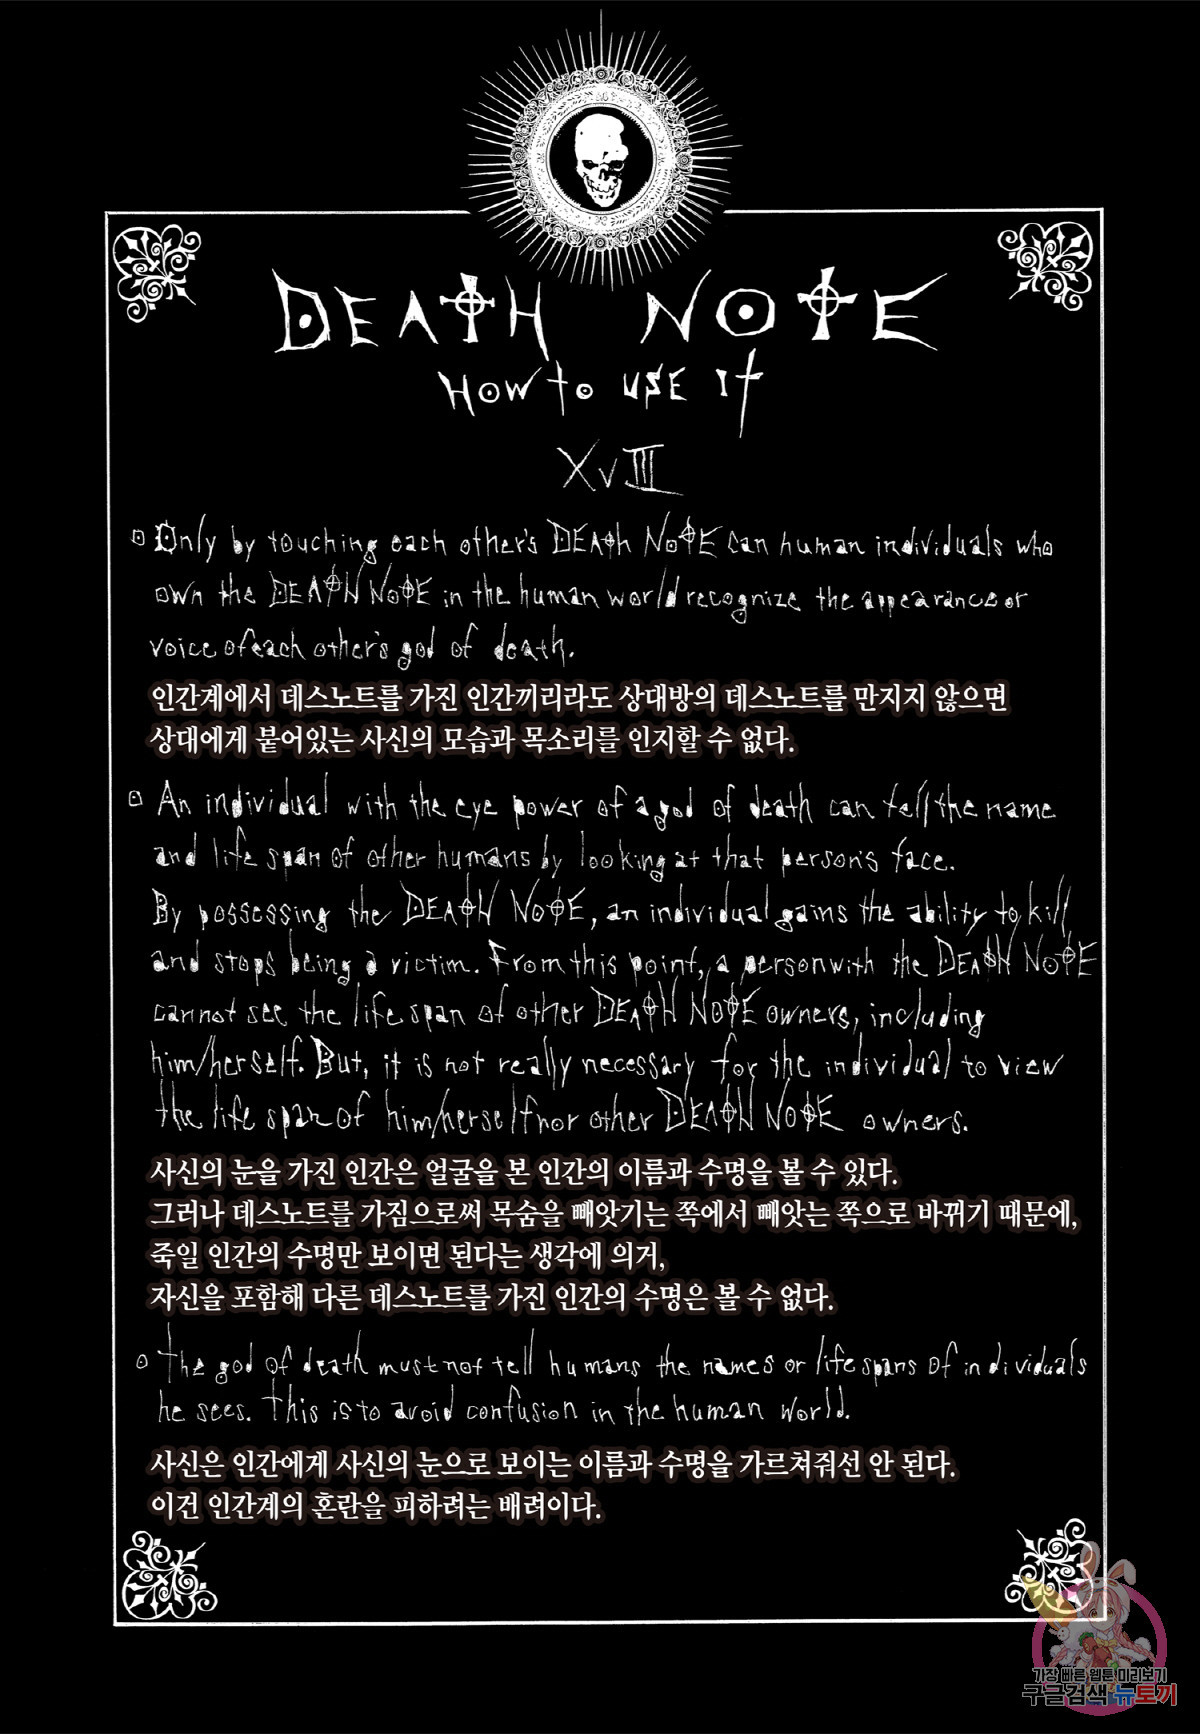 DEATH NOTE
HOW to USE It
XVIII
Only by touching each other's DEATH NOTE can human individuals who
own the DEATH NOTE in the human world recognize the appearance or
voice of each other's god of death.
인간계에서 데스노트를 가진 인간끼리라도 상대방의 데스노트를 만지지 않으면
상대에게 붙어있는 사신의 모습과 목소리를 인지할 수 없다.
An individual with the eye power of a god of death can tell the name
and life span of other humans by looking at that person's face.
By possessing the DEATH NOTE, an individual gains the ability to kill
and stops being a victim. From this point, a person with the DEATH NOTE
cannot see the life span of other DEATH NOTE owners, including
him/herself. But, it is not really necessary for the individual to view
the life span of him/herself nor other DEATH NOTE owners.
사신의 눈을 가진 인간은 얼굴을 본 인간의 이름과 수명을 볼 수 있다.
그러나 데스노트를 가짐으로써 목숨을 빼앗기는 쪽에서 빼앗는 쪽으로 바뀌기 때문에,
죽일 인간의 수명만 보이면 된다는 생각에 의거,
자신을 포함해 다른 데스노트를 가진 인간의 수명은 볼 수 없다.
The god of death must not tell humans the names or life spans of individuals
he sees. This is to avoid confusion in the human world.
사신은 인간에게 사신의 눈으로 보이는 이름과 수명을 가르쳐줘선 안 된다.
이건 인간계의 혼란을 피하려는 배려이다.
가장 빠른 웹툰 미리보기
구글검색 뉴토끼